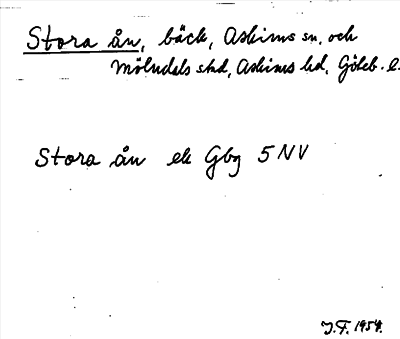 Stora ån, bäck, Askims sn. och
Mölndals stad, Askims hd, Göteb. l.
Stora ån ek Gbg 5 NV
J.F. 1954.